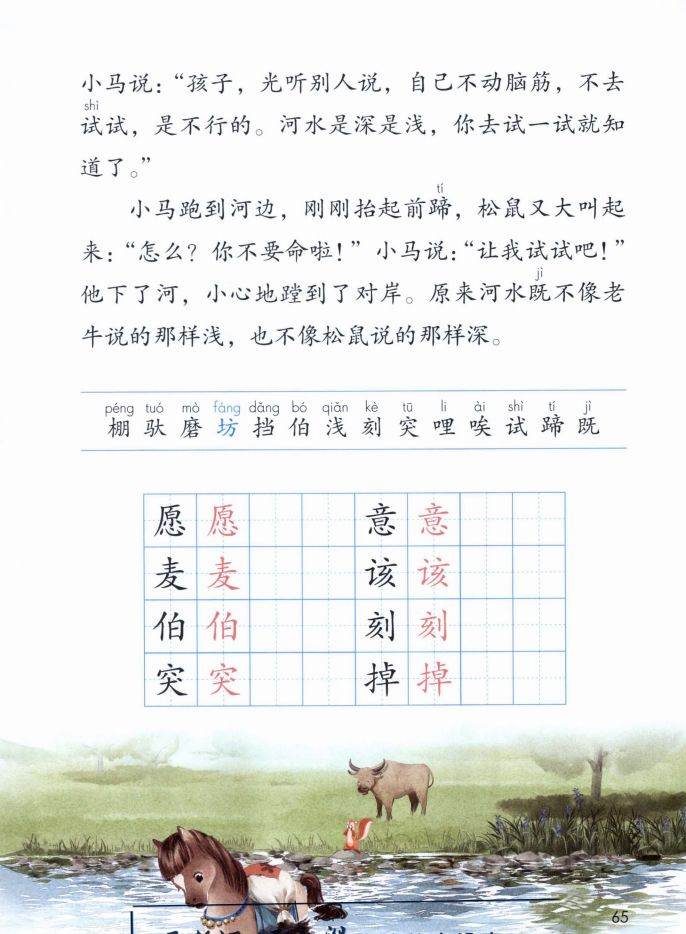 小马说：“孩子，光听别人说，自己不动脑筋，不去
shì
试试，是不行的。河水是深是浅，你去试一试就知
道了。”
tí
小马跑到河边，刚刚抬起前蹄，松鼠又大叫起
来：“怎么？你不要命啦！” 小马说：“让我试试吧！”
jì
他下了河，小心地蹚到了对岸。原来河水既不像老
牛说的那样浅，也不像松鼠说的那样深。
péng tuó mò fáng dǎng bó qiǎn kè tū li ài shì tí jì
棚 驮 磨 坊 挡 伯 浅 刻 突 哩 唉 试 蹄 既
愿 愿 意 意
麦 麦 该 该
伯 伯 刻 刻
突 突 掉 掉
65